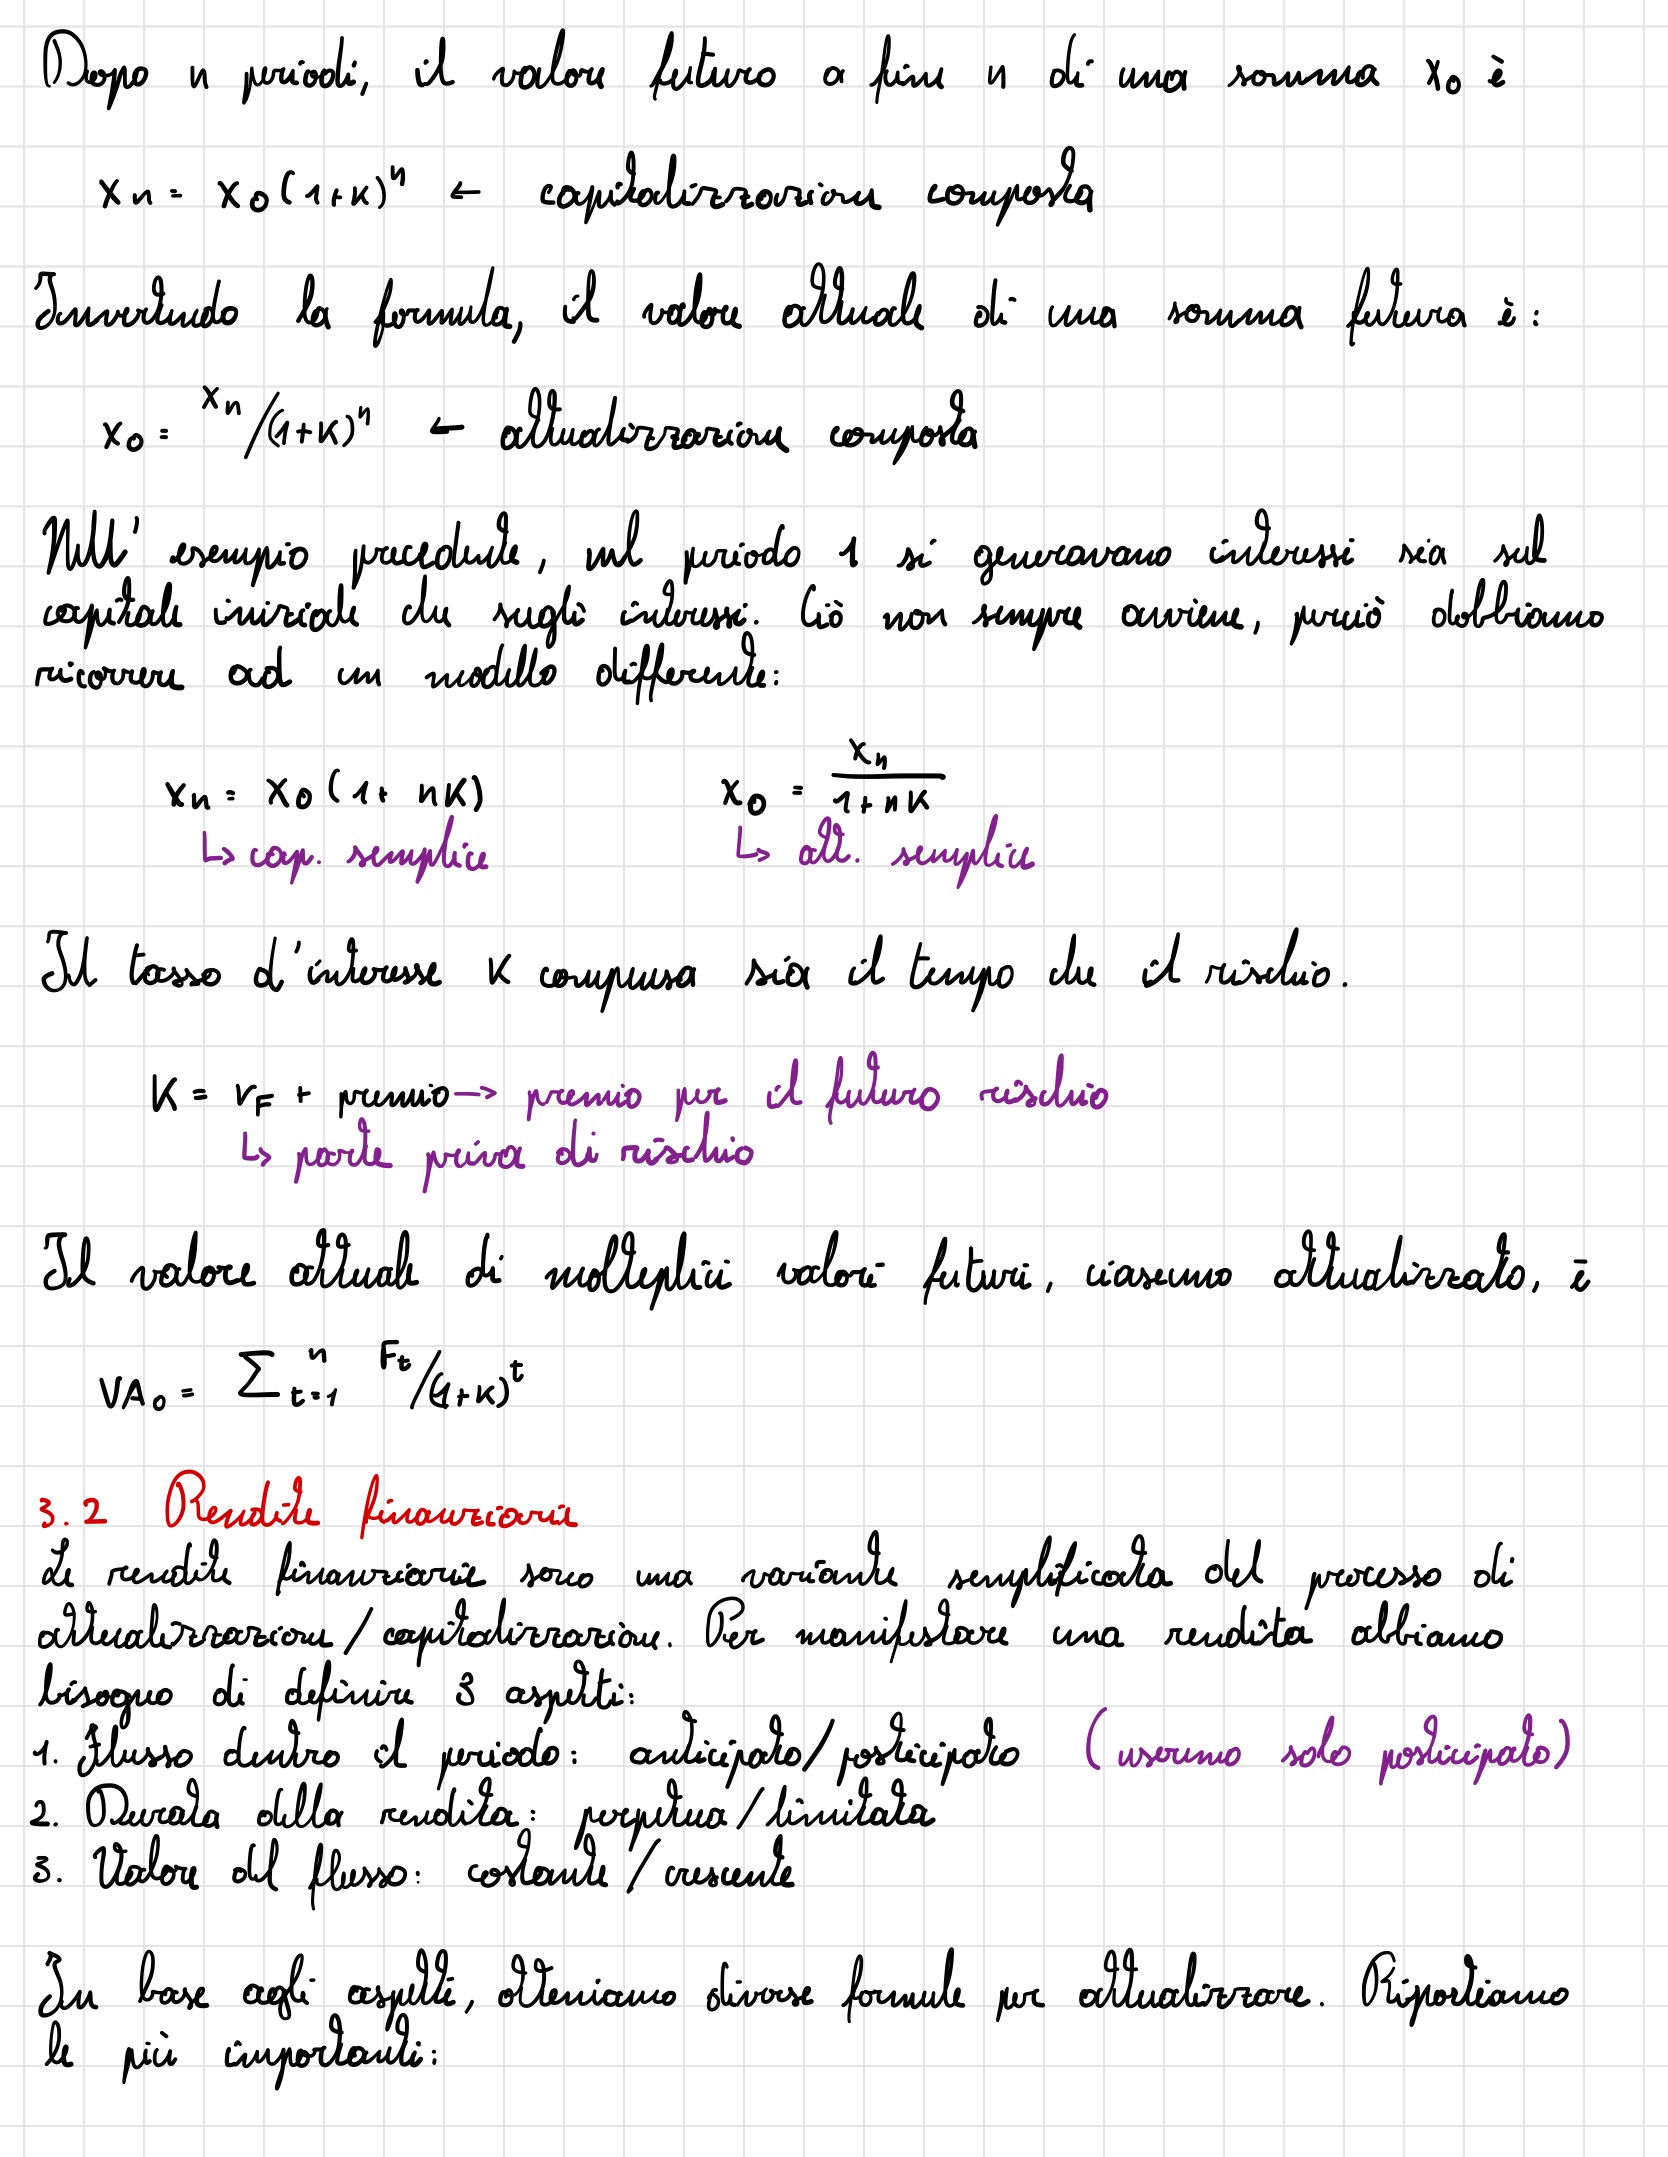 Dopo n periodi, il valore futuro a fine n di una somma x₀ è
xₙ = x₀(1+K)ⁿ ← capitalizzazione composta
Invertendo la formula, il valore attuale di una somma futura è:
x₀ = xₙ/(1+K)ⁿ ← attualizzazione composta
Nell'esempio precedente, nel periodo 1 si generavano interessi sia sul
capitale iniziale che sugli interessi. Ciò non sempre avviene, perciò dobbiamo
ricorrere ad un modello differente:
xₙ = x₀(1+ nK) x₀ = xₙ/(1+nK)
↳ cap. semplice ↳ att. semplice
Il tasso d'interesse K compensa sia il tempo che il rischio.
K = r_F + premio → premio per il futuro rischio
↳ parte priva di rischio
Il valore attuale di molteplici valori futuri, ciascuno attualizzato, è
VA₀ = ∑ₜ₌₁ⁿ Fₜ/(1+K)ᵗ
3.2 Rendite finanziarie
Le rendite finanziarie sono una variante semplificata del processo di
attualizzazione/capitalizzazione. Per manifestare una rendita abbiamo
bisogno di definire 3 aspetti:
1. Flusso dentro il periodo: anticipato/posticipato (useremo solo posticipato)
2. Durata della rendita: perpetua/limitata
3. Valore del flusso: costante/crescente
In base agli aspetti, otteniamo diverse formule per attualizzare. Riportiamo
le più importanti: